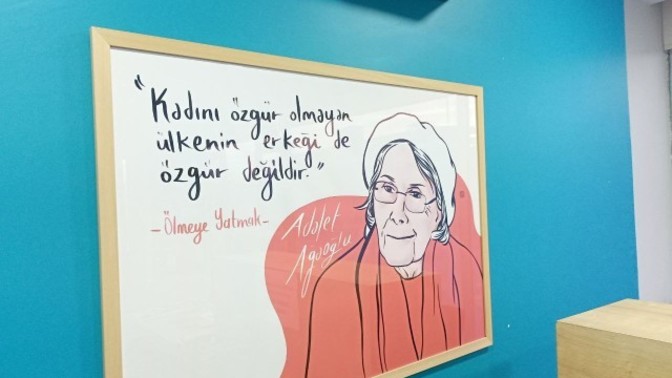 "Kadını özgür olmayan
ülkenin erkeği de
özgür değildir."
- Ölmeye Yatmak -
Adalet
Ağaoğlu